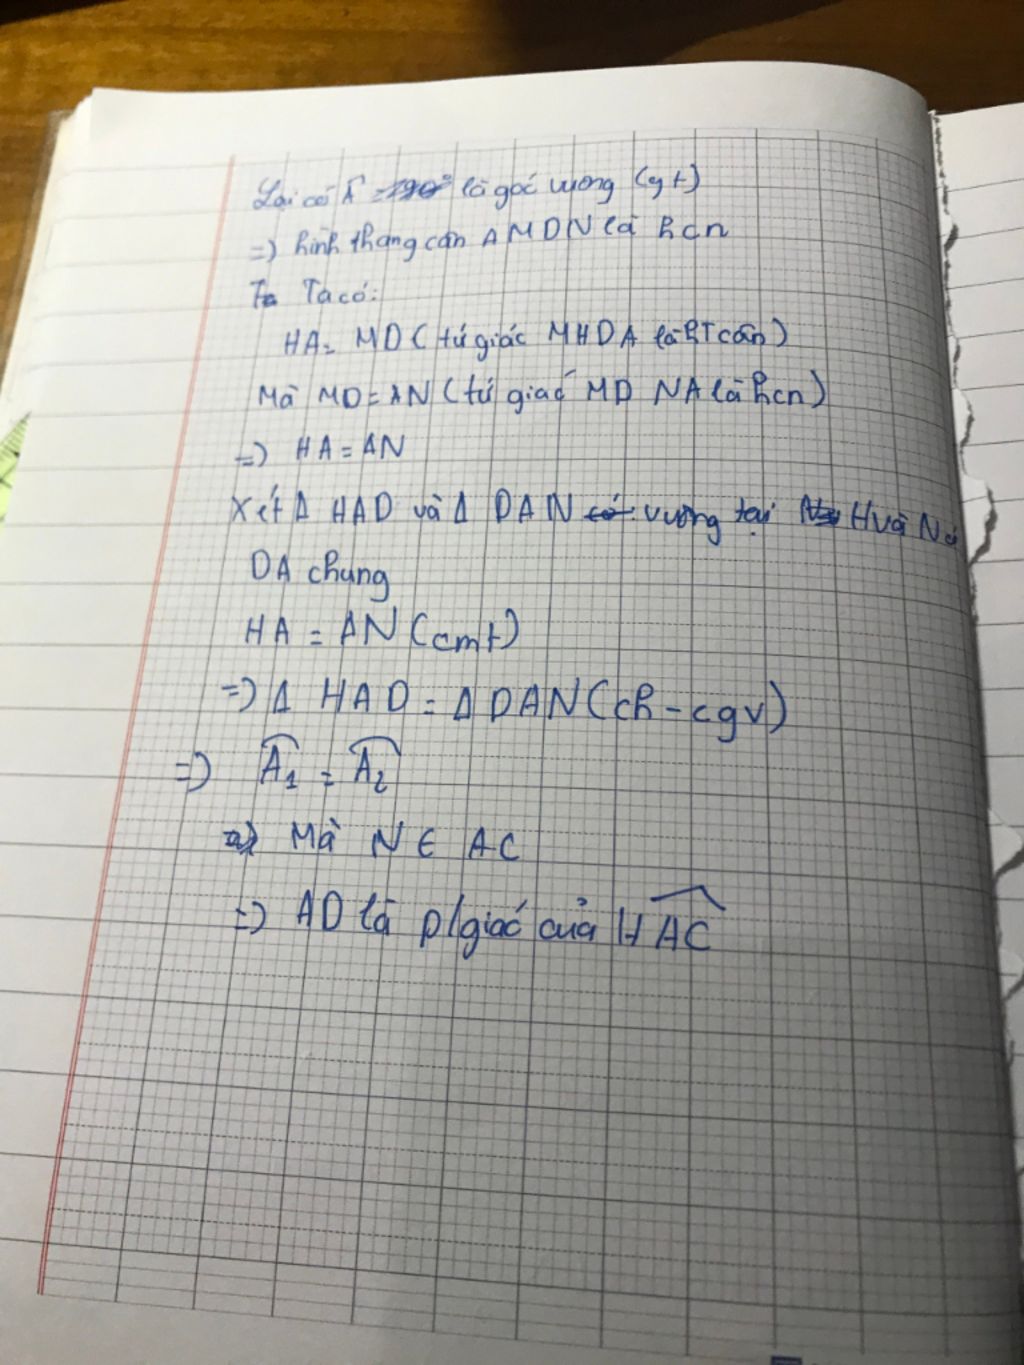 Lại có Â = 90° là góc vuông (gt)
=) hình thang cân AMDN là hcn
Ta Ta có:
HA = MD (tứ giác MHDA là hT cân)
Mà MD = AN (tứ giác MD NA là hcn)
=) HA = AN
Xét Δ HAD và Δ DAN có vuông tại H và N có
DA chung
HA = AN (cmt)
=) Δ HAD = Δ DAN (ch - cgv)
=) Â1 = Â2
Mà N ∈ AC
=) AD là p/giác của HAC